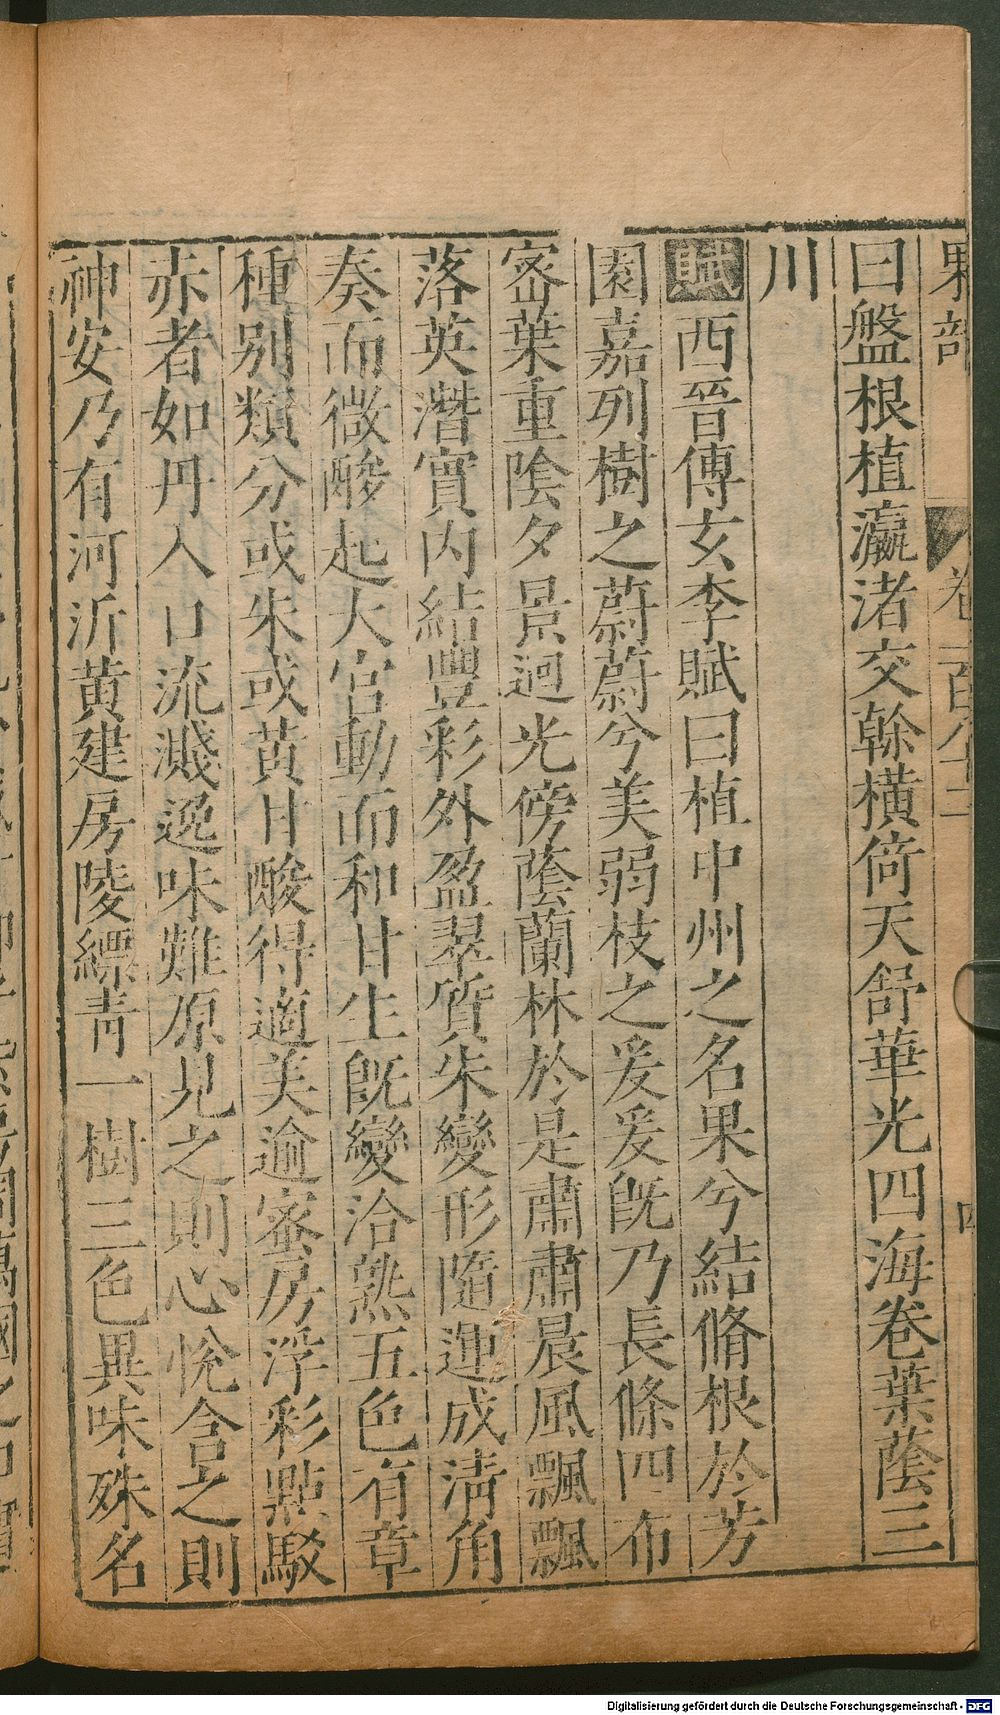 果部
卷一百八十二
四
曰盤根植瀛渚交榦橫倚天舒華光四海卷葉蔭三
川
賦西晉傅玄李賦曰植中州之名果兮結脩根於芳
園嘉列樹之蔚蔚兮美弱枝之爰爰旣乃長條四布
宻葉重陰夕景迴光傍蔭蘭林於是肅肅晨風飄飄
落英潛實內結豐彩外盈翠質朱變形隨運成清角
奏而微酸起大宫動而和甘生旣變洽熟五色有章
種別類分或朱或黄甘酸得適美逾蜜房浮彩點駁
赤者如丹入口流濺逸味難原見之則心悅含之則
神安乃有河沂黄建房陵縹青一樹三色異味殊名
Digitalisierung gefördert durch die Deutsche Forschungsgemeinschaft - DFG